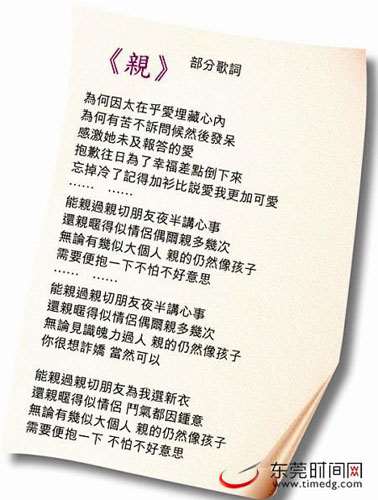 《親》 部分歌詞
為何因太在乎愛埋藏心內
為何有苦不訴問候然後發呆
感激她未及報答的愛
抱歉往日為了幸福差點倒下來
忘掉冷了記得加衫比說愛我更加可愛
…… ……
能親過親切朋友夜半講心事
還親暱得似情侶偶爾親多幾次
無論有幾似大個人 親的仍然像孩子
需要便抱一下不怕不好意思
…… ……
能親過親切朋友夜半講心事
還親暱得似情侶偶爾親多幾次
無論見識魄力過人 親的仍然像孩子
你很想詐嬌 當然可以
能親過親切朋友為我選新衣
還親暱得似情侶 鬥氣都因鍾意
無論有幾似大個人 親的仍然像孩子
需要便抱一下 不怕不好意思
东莞时间网
www.timedg.com